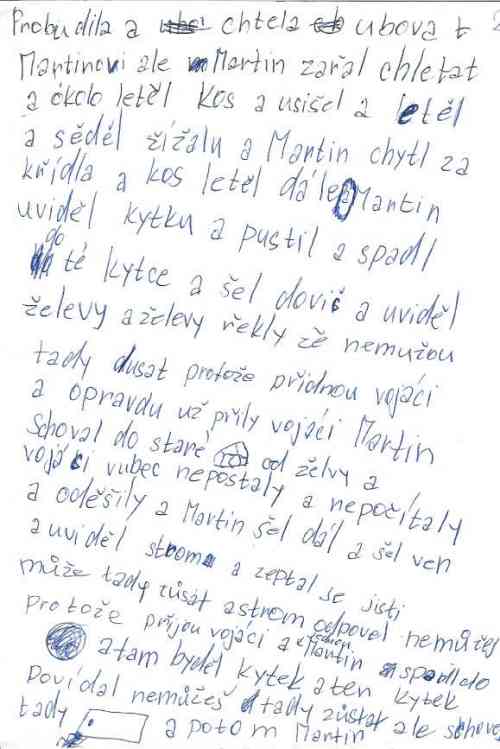 Probudila a chtela ubovat
Martinovi ale Martin zařal chletat
a okolo letěl kos a usišel a letěl
a sěděl žížalu a Martin chytl za
křídla a kos letěl dále a Martin
uviděl kytku a pustil a spadl
do té kytce a šel dovič a uviděl
želevy a želevy řekly že nemužou
tady dusat protože přidnou vojáci
a opravdu už přily vojáci Martin
schoval do staré od želvy a
vojáci vubec nepostaly a nepočítaly
a oděšily a Martin šel dál a šel ven
a uviděl strom a zeptal se jisti
může tady zůsat a strom odpovel nemůžeš
Protože příjou vojáci a Martin spadl do
a tam byděl kytek a ten kytek
povídal nemůžeš tady zůstat ale schovej
tady a potom Martin